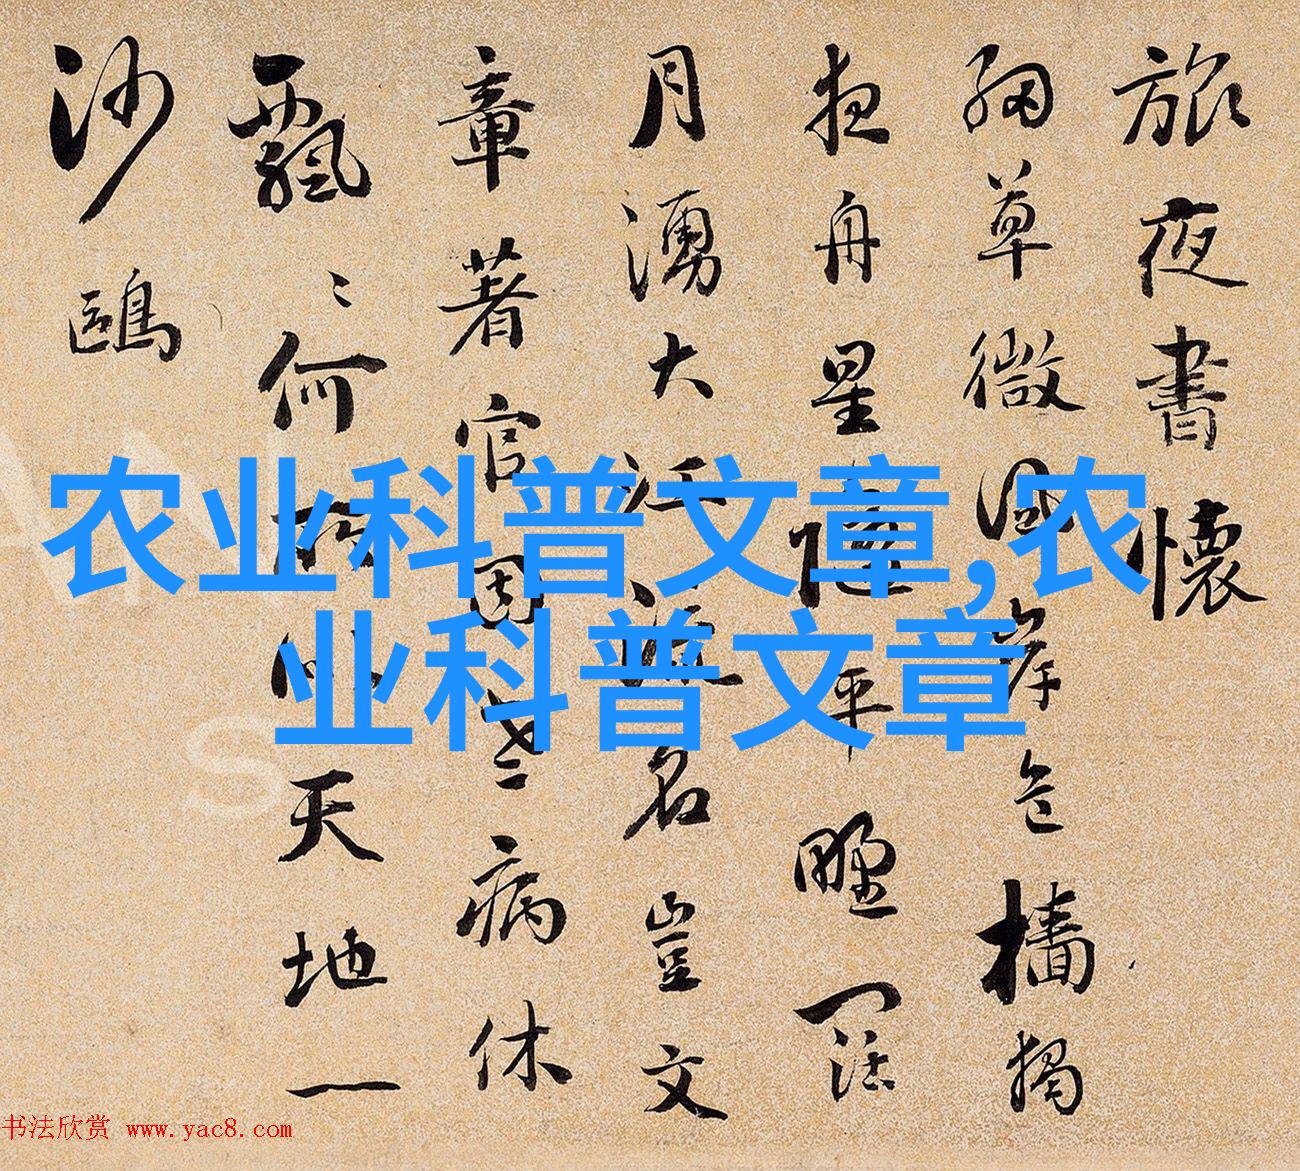 旅夜書懷
細草微風岸危檣獨
夜舟星平野闊
月湧大江流名豈文
章著官因老病休
飄〻何所似天地一
沙鷗
农业科普文章,农
业科普文章
书法欣赏 www.yac8.com